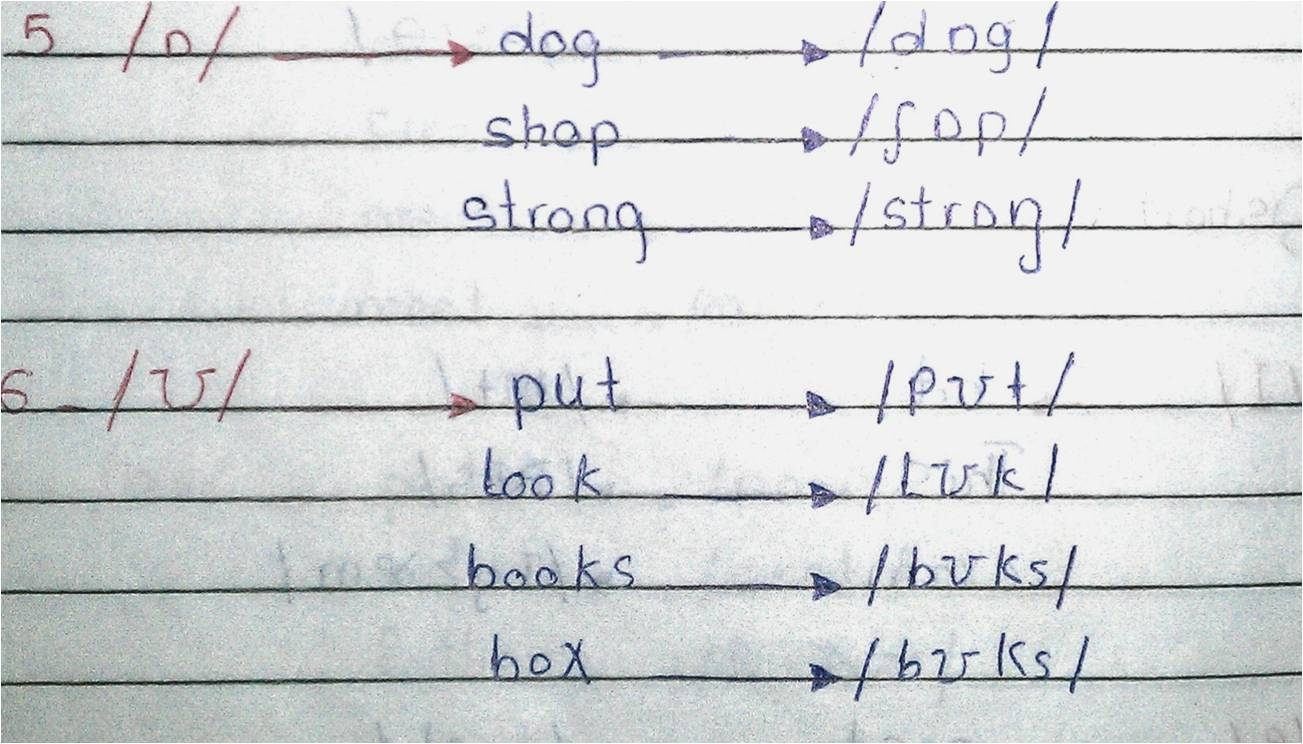 5 /ɒ/ → dog → /dɒg/
shop → /ʃɒp/
strong → /strɒŋ/
6 /ʊ/ → put → /pʊt/
look → /lʊk/
books → /bʊks/
box → /bʊks/